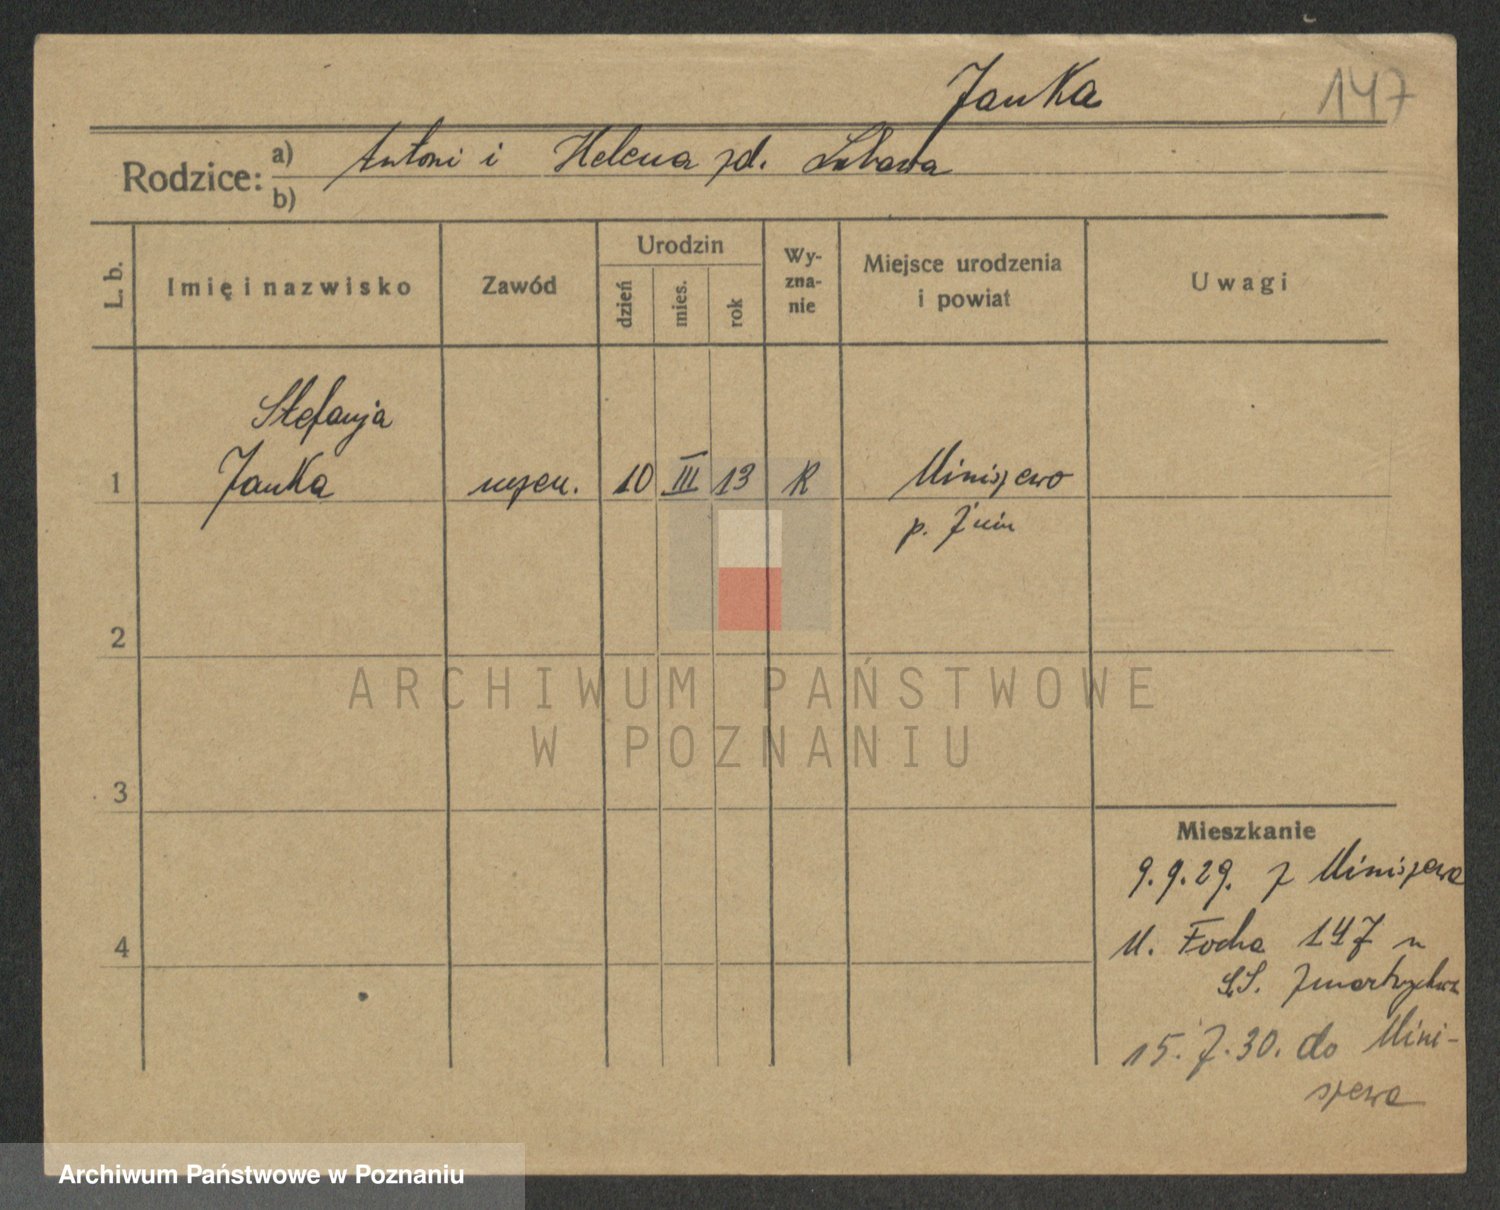 Janka
147
Rodzice: a) Antoni i Helena zd. Lubawa
b)
L. b.
Imię i nazwisko
Zawód
Urodzin
dzień
mies.
rok
Wy-
zna-
nie
Miejsce urodzenia
i powiat
Uwagi
Stefanja
1 Janka uczen. 10 III 13 R Miniszewo
p. Żnin
2
ARCHIWUM PAŃSTWOWE
W POZNANIU
3
Mieszkanie
9.9.29. z Miniszewa
M. Focha 147 u
4
S.S. Zmartwychws
15.7.30. do Mini-
szewa
Archiwum Państwowe w Poznaniu